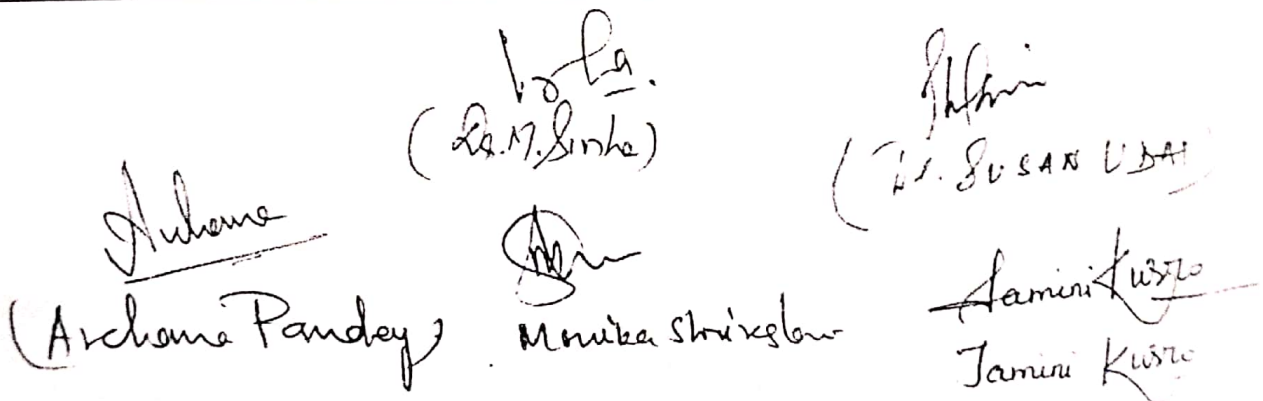 (Dr. M. Sinha)
(Dr. SUSAN UDAI
Archana
(Archana Pandey)
Monika
Jamini Kusro
Jamini Kusro